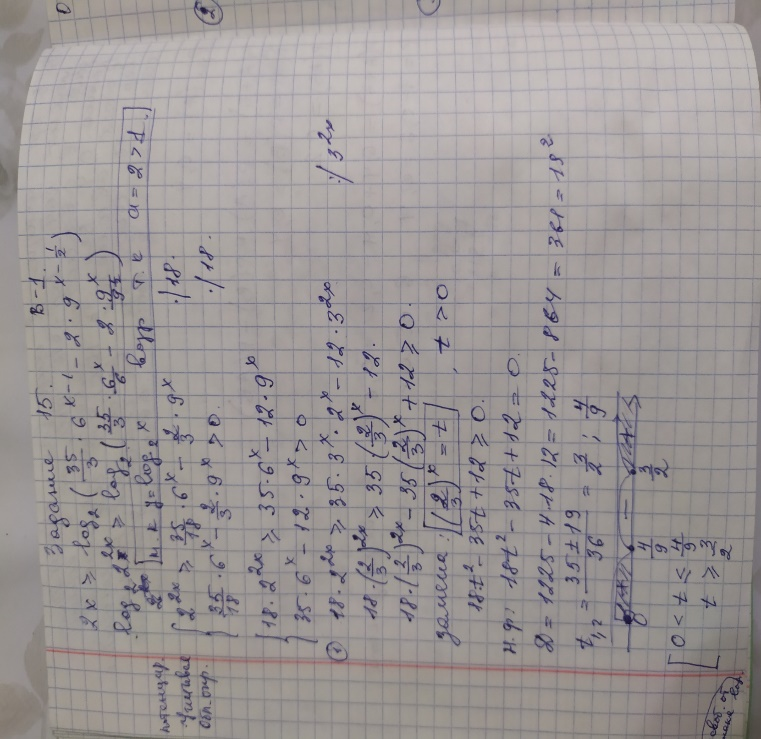 Задание 15. В-1.
2x ≥ log₂(35/3 · 6^(x-1) - 2 · 9^(x-1/2))
log₂ 2^(2x) ≥ log₂(35/3 · 6^x/6 - 2 ·
[т.к y = log₂ x возр т.к a = 2 > 1.]
потенцир.
учитывая
обл. опр.
{ 2^(2x) ≥ 35/18 · 6^x - 2/3 · 9^x ·/18.
{ 35/18 · 6^x - 2/3 · 9^x > 0. ·/18.
{ 18 · 2^(2x) ≥ 35 · 6^x - 12 · 9^x
{ 35 · 6^x - 12 · 9^x > 0
① 18 · 2^(2x) ≥ 35 · 3^x · 2^x - 12 · 3^(2x) :/ 3^(2x)
18 · (2/3)^(2x) ≥ 35 (2/3)^x - 12.
18 · (2/3)^(2x) - 35 (2/3)^x + 12 ≥ 0.
замена: [(2/3)^x = t], t > 0
18t² - 35t + 12 ≥ 0.
н.ф: 18t² - 35t + 12 = 0.
D = 1225 - 4 · 18 · 12 = 1225 - 864 = 361 = 19²
t₁,₂ = (35 ± 19)/36 = 3/2 ; 4/9
0 4/9 3/2
[ 0 < t ≤ 4/9
[ t ≥ 3/2
②